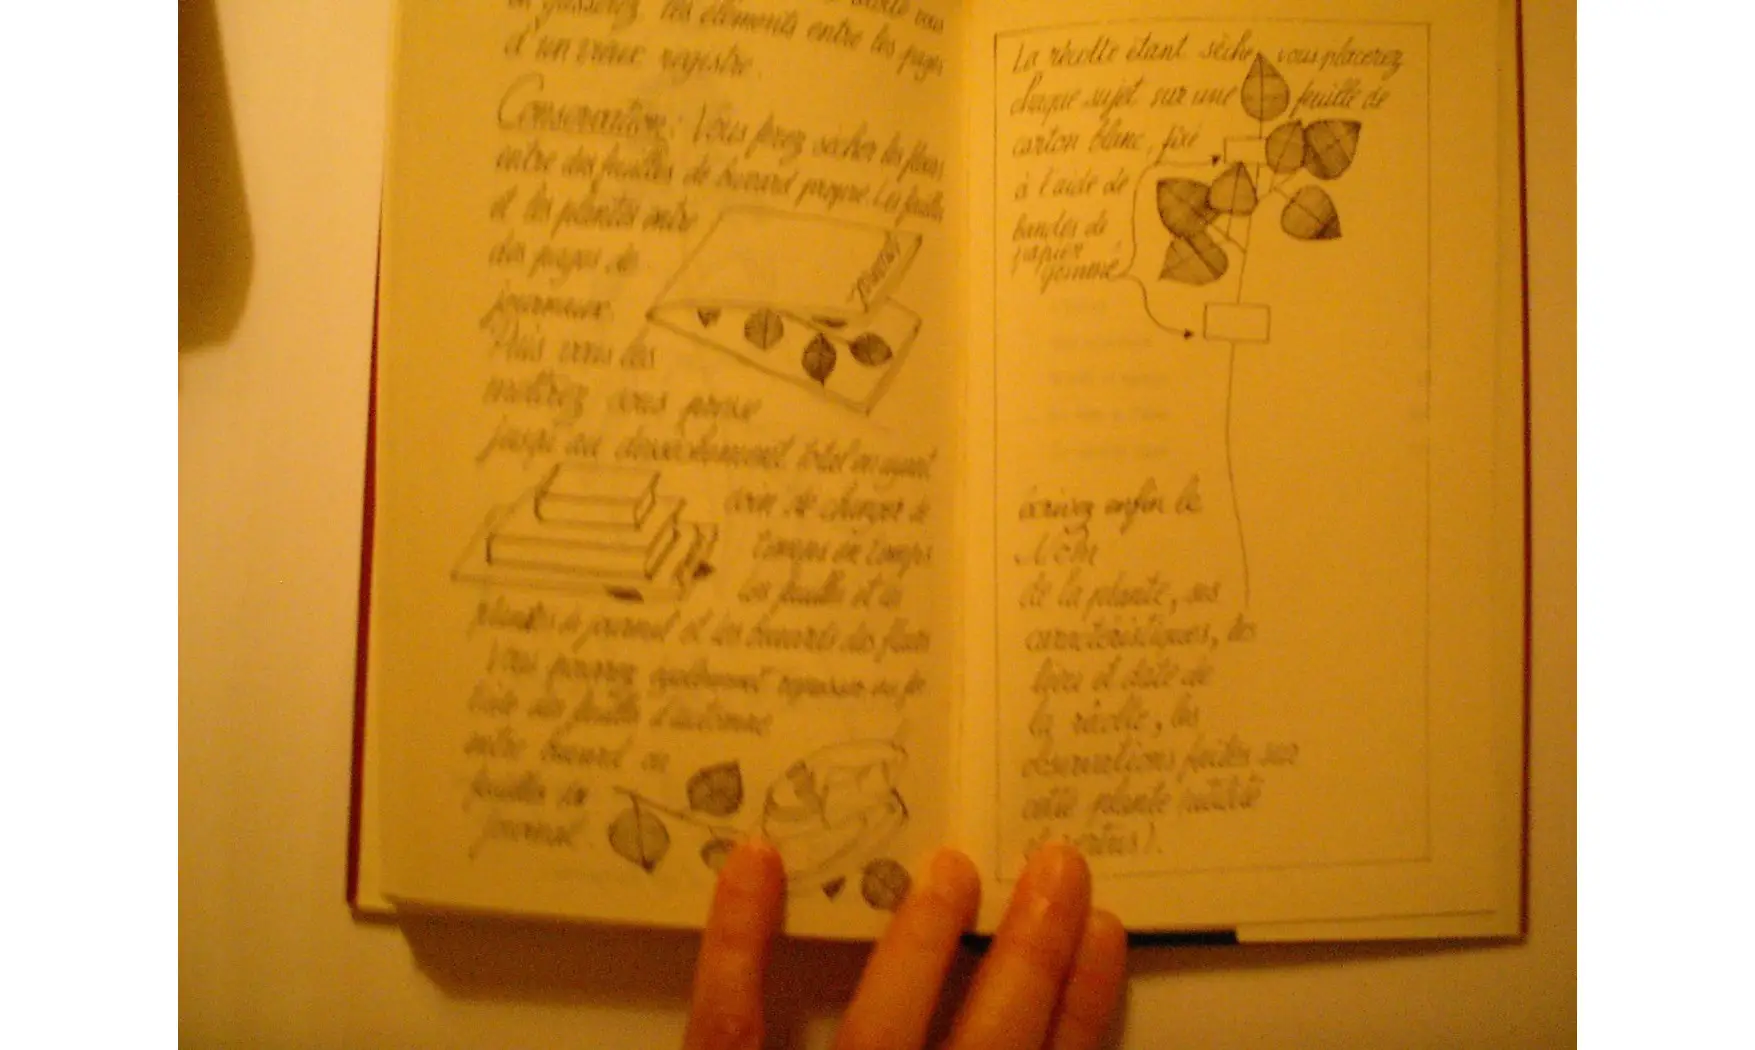 en glisserez les éléments entre les pages
d'un vieux registre.
Conservation: Vous ferez sécher les fleurs
entre des feuilles de buvard propre. Les feuilles
et les plantes entre
des pages de
journaux.
Puis vous les
mettrez sous presse
jusqu'au dessèchement total en ayant
soin de changer de
temps en temps
les feuilles et les
plantes de journal et les buvards des fleurs
Vous pourrez également repasser au fer
tiède des feuilles d'automne
entre buvard ou
feuilles de
journal.
Journal
La récolte étant sèche, vous placerez
chaque sujet sur une feuille de
carton blanc, fixé
à l'aide de
bandes de
papier
gommé
écrivez enfin le
Nom
de la plante, ses
caractéristiques, les
lieu et date de
la récolte, les
observations faites sur
cette plante (utilité